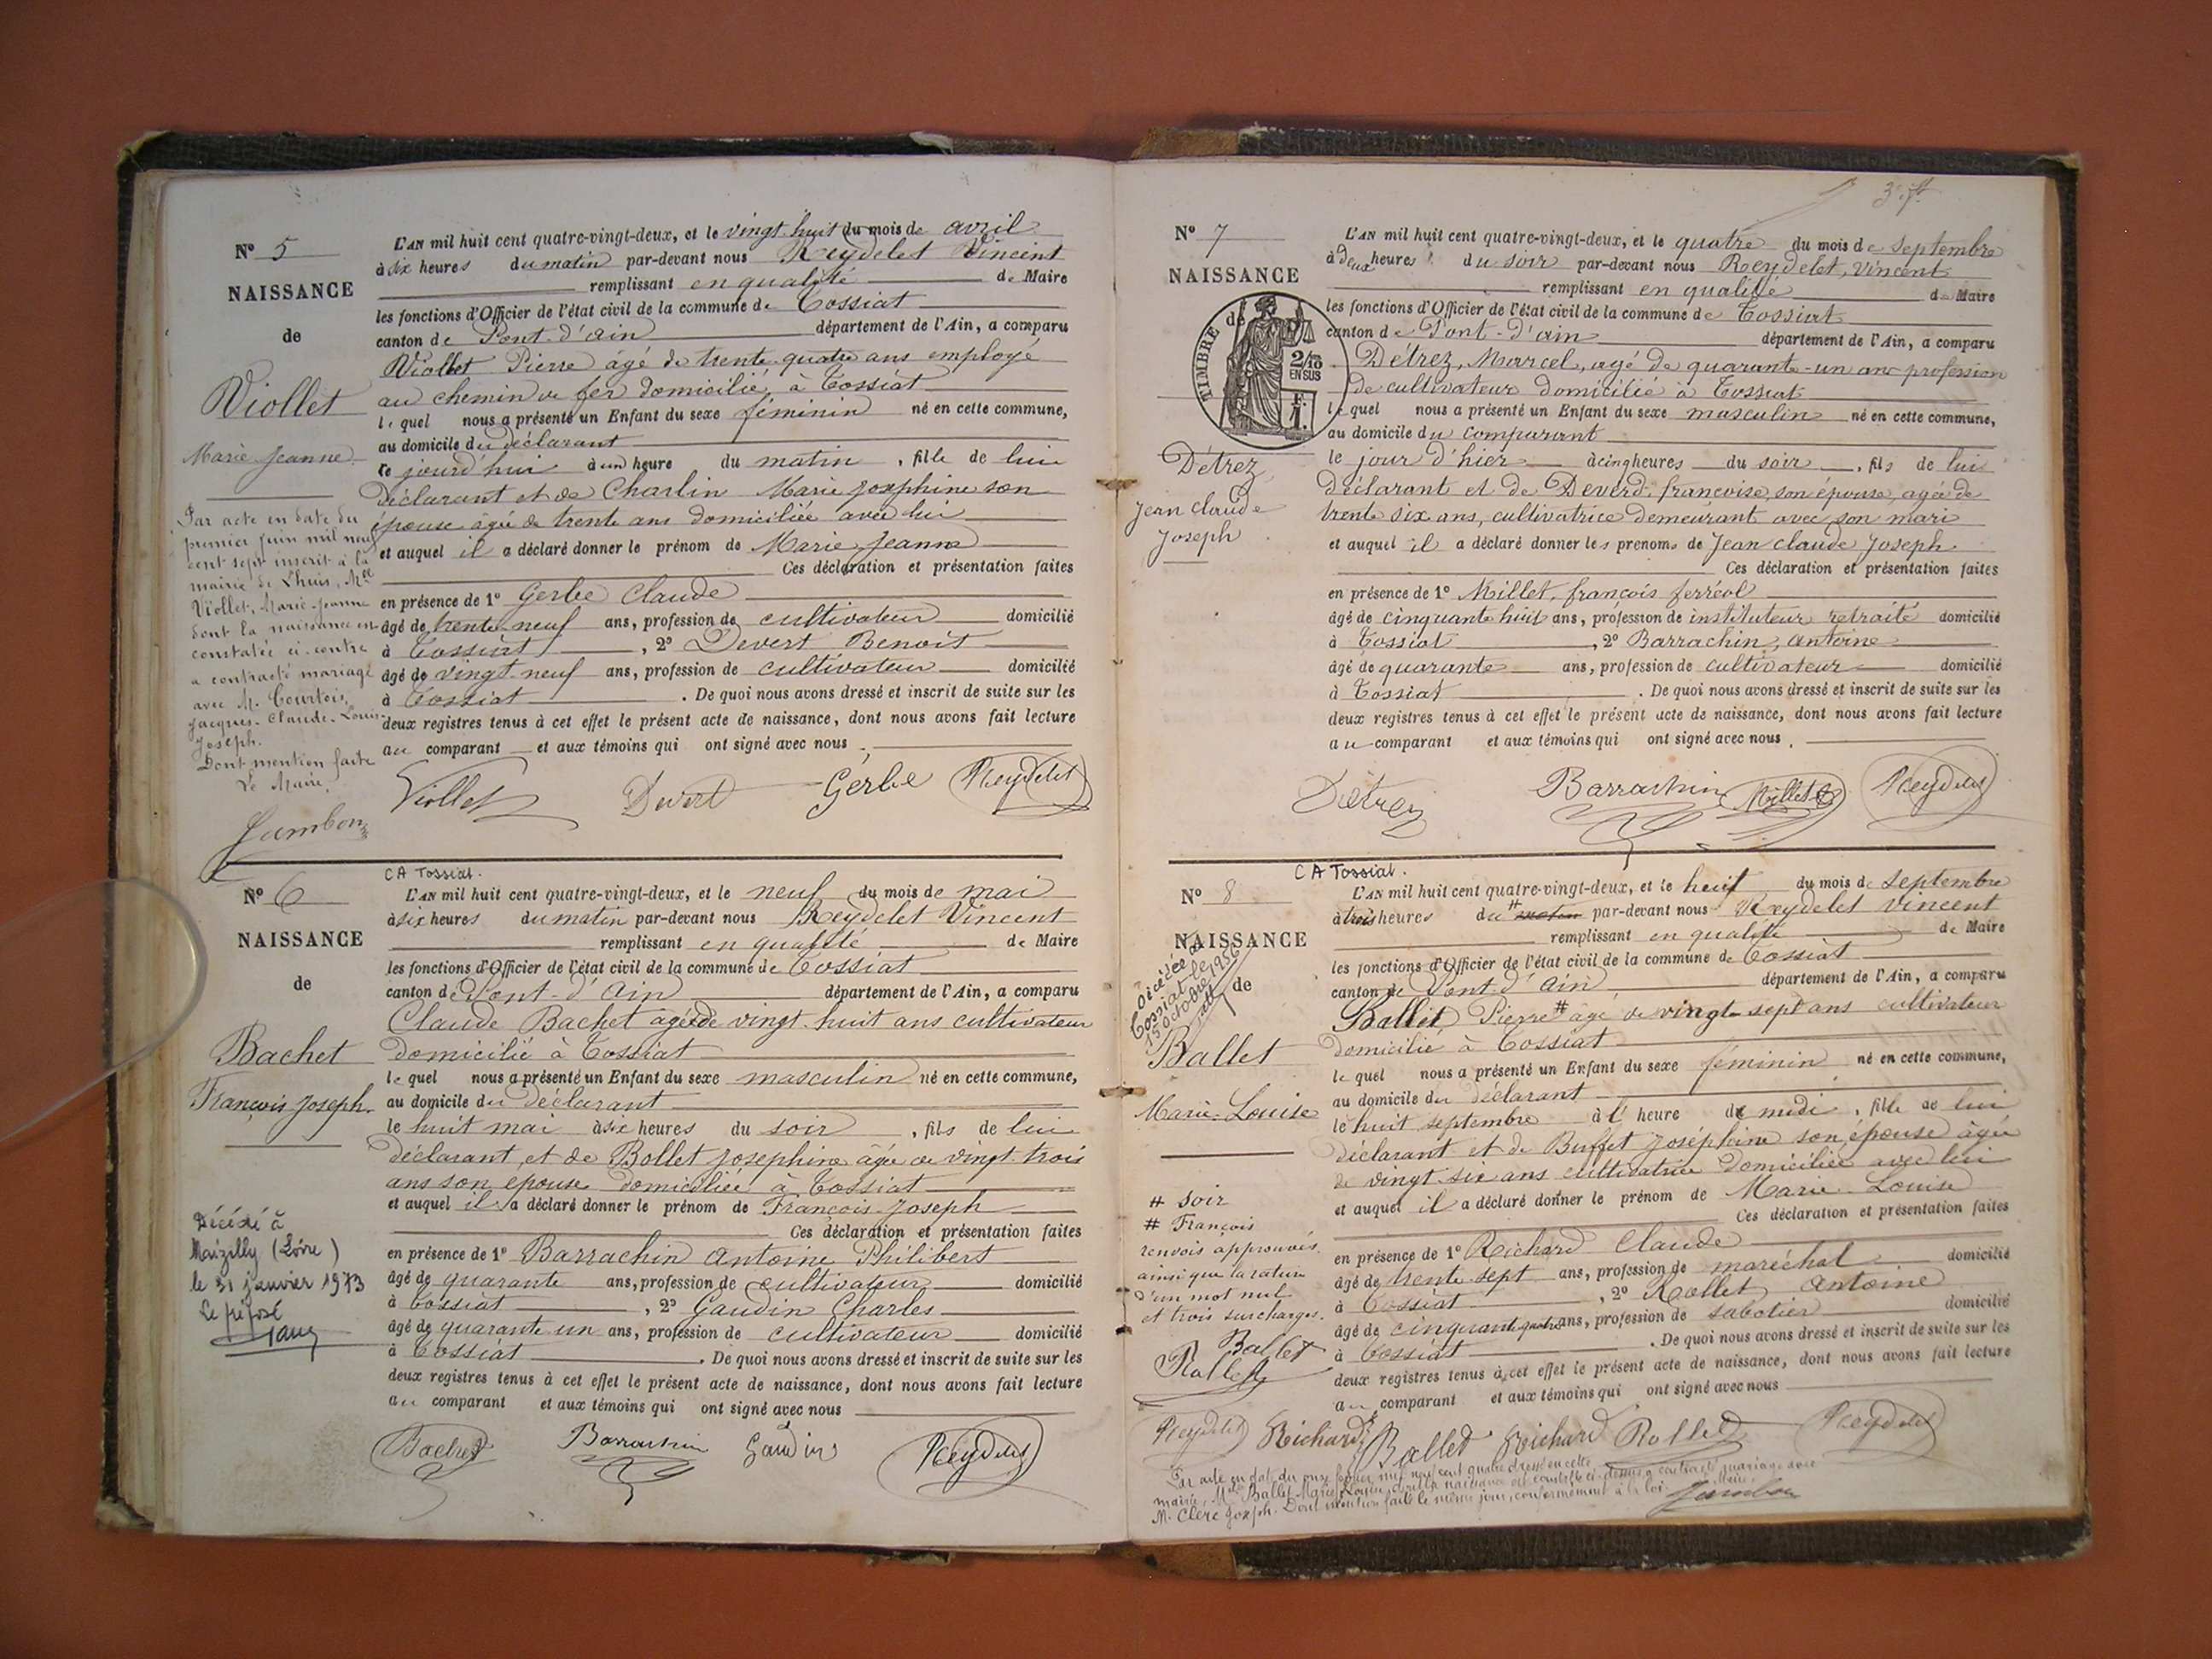 N° 5
NAISSANCE
de
Viollet
Marie Jeanne
Par acte en date du
premier juin mil neuf
cent sept inscrit à la
mairie de Lhuis, Mlle
Viollet, Marie-Jeanne
dont la naissance est
constatée ci-contre
a contracté mariage
avec M. Courtois,
Jacques-Claude-Louis-
Joseph.
Dont mention faite
Le Maire,
Jambon
L'AN mil huit cent quatre-vingt-deux, et le vingt huit du mois de avril
à six heures du matin par-devant nous Reydelet Vincent
remplissant en qualité de Maire
les fonctions d'Officier de l'état civil de la commune de Tossiat
canton de Pont-d'ain département de l'Ain, a comparu
Viollet Pierre âgé de trente quatre ans employé
au chemin de fer domicilié à Tossiat
lequel nous a présenté un Enfant du sexe féminin né en cette commune,
au domicile du déclarant
ce jourd'hui à un heure du matin, fille de lui
déclarant et de Charlin Marie Josephine son
épouse âgée de trente ans domiciliée avec lui
et auquel il a déclaré donner le prénom de Marie Jeanne
Ces déclaration et présentation faites
en présence de 1° Gerbe Claude
âgé de trente neuf ans, profession de cultivateur domicilié
à Tossiat, 2° Devert Benoit
âgé de vingt neuf ans, profession de cultivateur domicilié
à Tossiat. De quoi nous avons dressé et inscrit de suite sur les
deux registres tenus à cet effet le présent acte de naissance, dont nous avons fait lecture
au comparant et aux témoins qui ont signé avec nous.
Viollet Devert Gerbe Reydelet
CA Tossiat.
N° 6
NAISSANCE
de
Bachet
François Joseph
Décédé à
Maizilly (Loire)
le 31 janvier 1973
Le préposé
L'AN mil huit cent quatre-vingt-deux, et le neuf du mois de mai
à six heures du matin par-devant nous Reydelet Vincent
remplissant en qualité de Maire
les fonctions d'Officier de l'état civil de la commune de Tossiat
canton de Pont-d'Ain département de l'Ain, a comparu
Claude Bachet agé de vingt huit ans cultivateur
domicilié à Tossiat
lequel nous a présenté un Enfant du sexe masculin né en cette commune,
au domicile du déclarant
le huit mai à six heures du soir, fils de lui
déclarant, et de Bollet Josephine âgée de vingt trois
ans son epouse domiciliée à Tossiat
et auquel il a déclaré donner le prénom de François-Joseph
Ces déclaration et présentation faites
en présence de 1° Barrachin Antoine Philibert
âgé de quarante ans, profession de cultivateur domicilié
à Tossiat, 2° Gaudin Charles
âgé de quarante un ans, profession de cultivateur domicilié
à Tossiat. De quoi nous avons dressé et inscrit de suite sur les
deux registres tenus à cet effet le présent acte de naissance, dont nous avons fait lecture
au comparant et aux témoins qui ont signé avec nous
Bachet Barrachin Gaudin Reydelet
N° 7
NAISSANCE
de
TIMBRE
2/10
EN SUS
F.
1.
Détrez
Jean Claude
Joseph
L'AN mil huit cent quatre-vingt-deux, et le quatre du mois de septembre
à deux heures du soir par-devant nous Reydelet, Vincent
remplissant en qualité de Maire
les fonctions d'Officier de l'état civil de la commune de Tossiat
canton de Pont-d'ain département de l'Ain, a comparu
Détrez, Marcel, agé de quarante-un ans profession
de cultivateur domicilié à Tossiat
lequel nous a présenté un Enfant du sexe masculin né en cette commune,
au domicile du comparant
le jour d'hier à cinq heures du soir, fils de lui
déclarant et de Deverd françoise, son épouse, agée de
trente six ans, cultivatrice demeurant avec son mari
et auquel il a déclaré donner les prenoms de Jean claude Joseph
Ces déclaration et présentation faites
en présence de 1° Millet, françois ferréol
âgé de cinquante huit ans, profession de instituteur retraité domicilié
à Tossiat, 2° Barrachin, Antoine
âgé de quarante ans, profession de cultivateur domicilié
à Tossiat. De quoi nous avons dressé et inscrit de suite sur les
deux registres tenus à cet effet le présent acte de naissance, dont nous avons fait lecture
au comparant et aux témoins qui ont signé avec nous.
Détrez Barrachin Millet Reydelet
CA Tossiat.
N° 8
NAISSANCE
de
Décédée à
Tossiat le
15 octobre 1956
Ballet
Marie-Louise
# soir
# François
renvois approuvés
ainsi que la rature
d'un mot nul
et trois surcharges.
Ballet
Rollet
L'AN mil huit cent quatre-vingt-deux, et le huit du mois de septembre
à trois heures du # matin par-devant nous Reydelet Vincent
remplissant en qualité de Maire
les fonctions d'Officier de l'état civil de la commune de Tossiat
canton de Pont-d'ain département de l'Ain, a comparu
Ballet Pierre # âgé de vingt-sept ans cultivateur
domicilié à Tossiat
lequel nous a présenté un Enfant du sexe féminin né en cette commune,
au domicile du déclarant
le huit septembre à l'heure de midi, fille de lui
déclarant et de Buffet Joséphine son épouse âgée
de vingt six ans cultivatrice domiciliée avec lui
et auquel il a déclaré donner le prénom de Marie-Louise
Ces déclaration et présentation faites
en présence de 1° Richard Claude
âgé de trente sept ans, profession de maréchal domicilié
à Tossiat, 2° Rollet Antoine
âgé de cinquante quatre ans, profession de sabotier domicilié
à Tossiat. De quoi nous avons dressé et inscrit de suite sur les
deux registres tenus à cet effet le présent acte de naissance, dont nous avons fait lecture
au comparant et aux témoins qui ont signé avec nous
Reydelet Richard Ballet Richard Rollet Reydelet
Par acte en date du onze février mil neuf cent quatre dressé en cette
mairie, Mlle Ballet Marie-Louise, dont la naissance est constatée ci-dessus a contracté mariage avec
M. Clerc Joseph. Dont mention faite le même jour, conformément à la loi.
Jambon